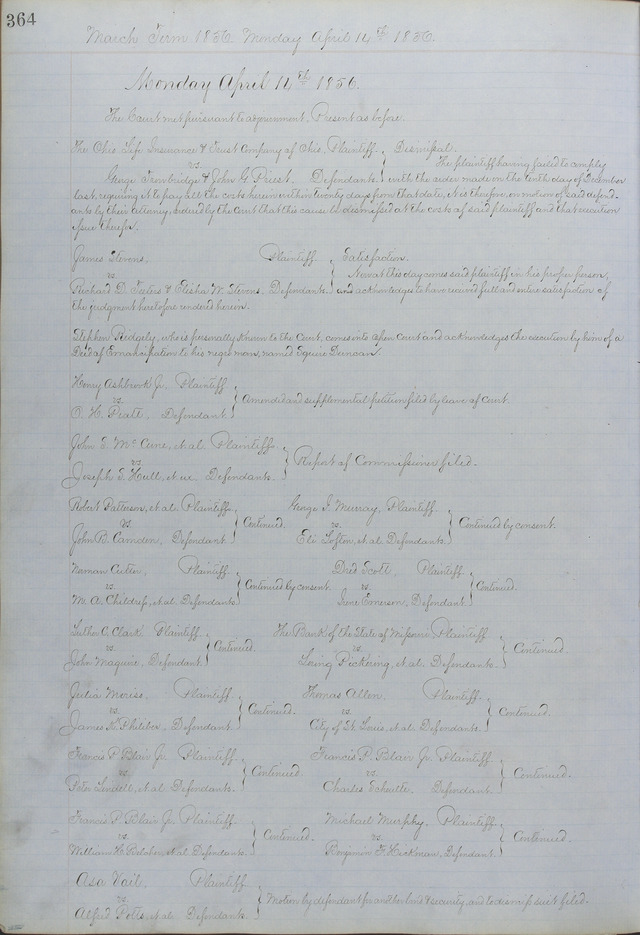 364
March Term 1856. Monday April 14th 1856.
Monday April 14th 1856.
The Court met pursuant to adjournment, Present as before.
The Ohio Life Insurance & Trust Company of Ohio, Plaintiff
vs.
George Trowbridge & John G. Priest, Defendants.
Dismissal.
The plaintiff having failed to comply
with the order made on the tenth day of December
last, requiring it to pay all the costs herein within twenty days from that date, it is therefore, on motion of said defend-
ants by their attorney, ordered by the Court that this cause be dismissed at the costs of said plaintiff and that execution
issue therefor.
James Stevens, Plaintiff
vs.
Richard D. & Elisha W. Stevens, Defendants.
Satisfaction.
Now at this day comes said plaintiff in his proper person,
and acknowledges to have received full and entire satisfaction of
the judgment heretofore rendered herein.
Stephen Ridgely, who is personally known to the Court, comes into open Court and acknowledges the execution by him of a
Deed of Emancipation to his negro man, named Squire Duncan.
Henry Ashbrook Jr. Plaintiff
vs.
O. H. Platt, Defendant.
Amended and supplemental petition filed by leave of Court.
John E. McCune, et al. Plaintiffs
vs.
Joseph S. Hull, et ux. Defendants.
Report of Commissioner filed.
Robert Patterson, et al. Plaintiffs
vs.
John B. Camden, Defendant.
Continued.
George I. Murray, Plaintiff
vs.
Eli Lofton, et al. Defendants.
Continued by consent.
Norman Cutter, Plaintiff
vs.
W. A. Childress, et al. Defendants.
Continued by consent.
Dred Scott, Plaintiff
vs.
Irene Emerson, Defendant.
Continued.
Luther C. Clark, Plaintiff
vs.
John Maguire, Defendant.
Continued.
The Bank of the State of Missouri Plaintiff
vs.
Loring Pickering, et al. Defendants.
Continued.
Julia Plaintiff
vs.
James N. Defendant.
Continued.
Thomas Allen, Plaintiff
vs.
City of St. Louis, et al. Defendants.
Continued.
Francis P. Blair Jr. Plaintiff
vs.
Peter Lindell, et al. Defendants.
Continued.
Francis P. Blair Jr. Plaintiff
vs.
Charles Defendant.
Continued.
Francis P. Blair Jr. Plaintiff
vs.
William H. Belcher, et al. Defendants.
Continued.
Michael Murphy, Plaintiff
vs.
Benjamin F. Hickman, Defendant.
Continued.
Asa Vail, Plaintiff
vs.
Alfred Potts, et al. Defendants.
Motion by defendant for another bond & security, and to dismiss suit filed.